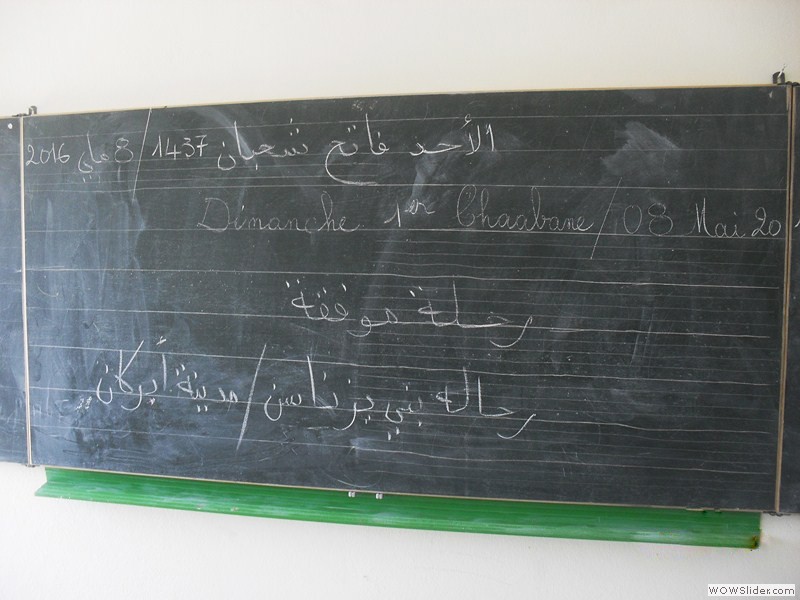 الأحد فاتح شعبان 1437 / 8 ماي 2016
Dimanche 1er Chaabane / 08 Mai 20
رحلة موفقة
رحالة بني يزناسن / مدينة أبركان
WOWSlider.com